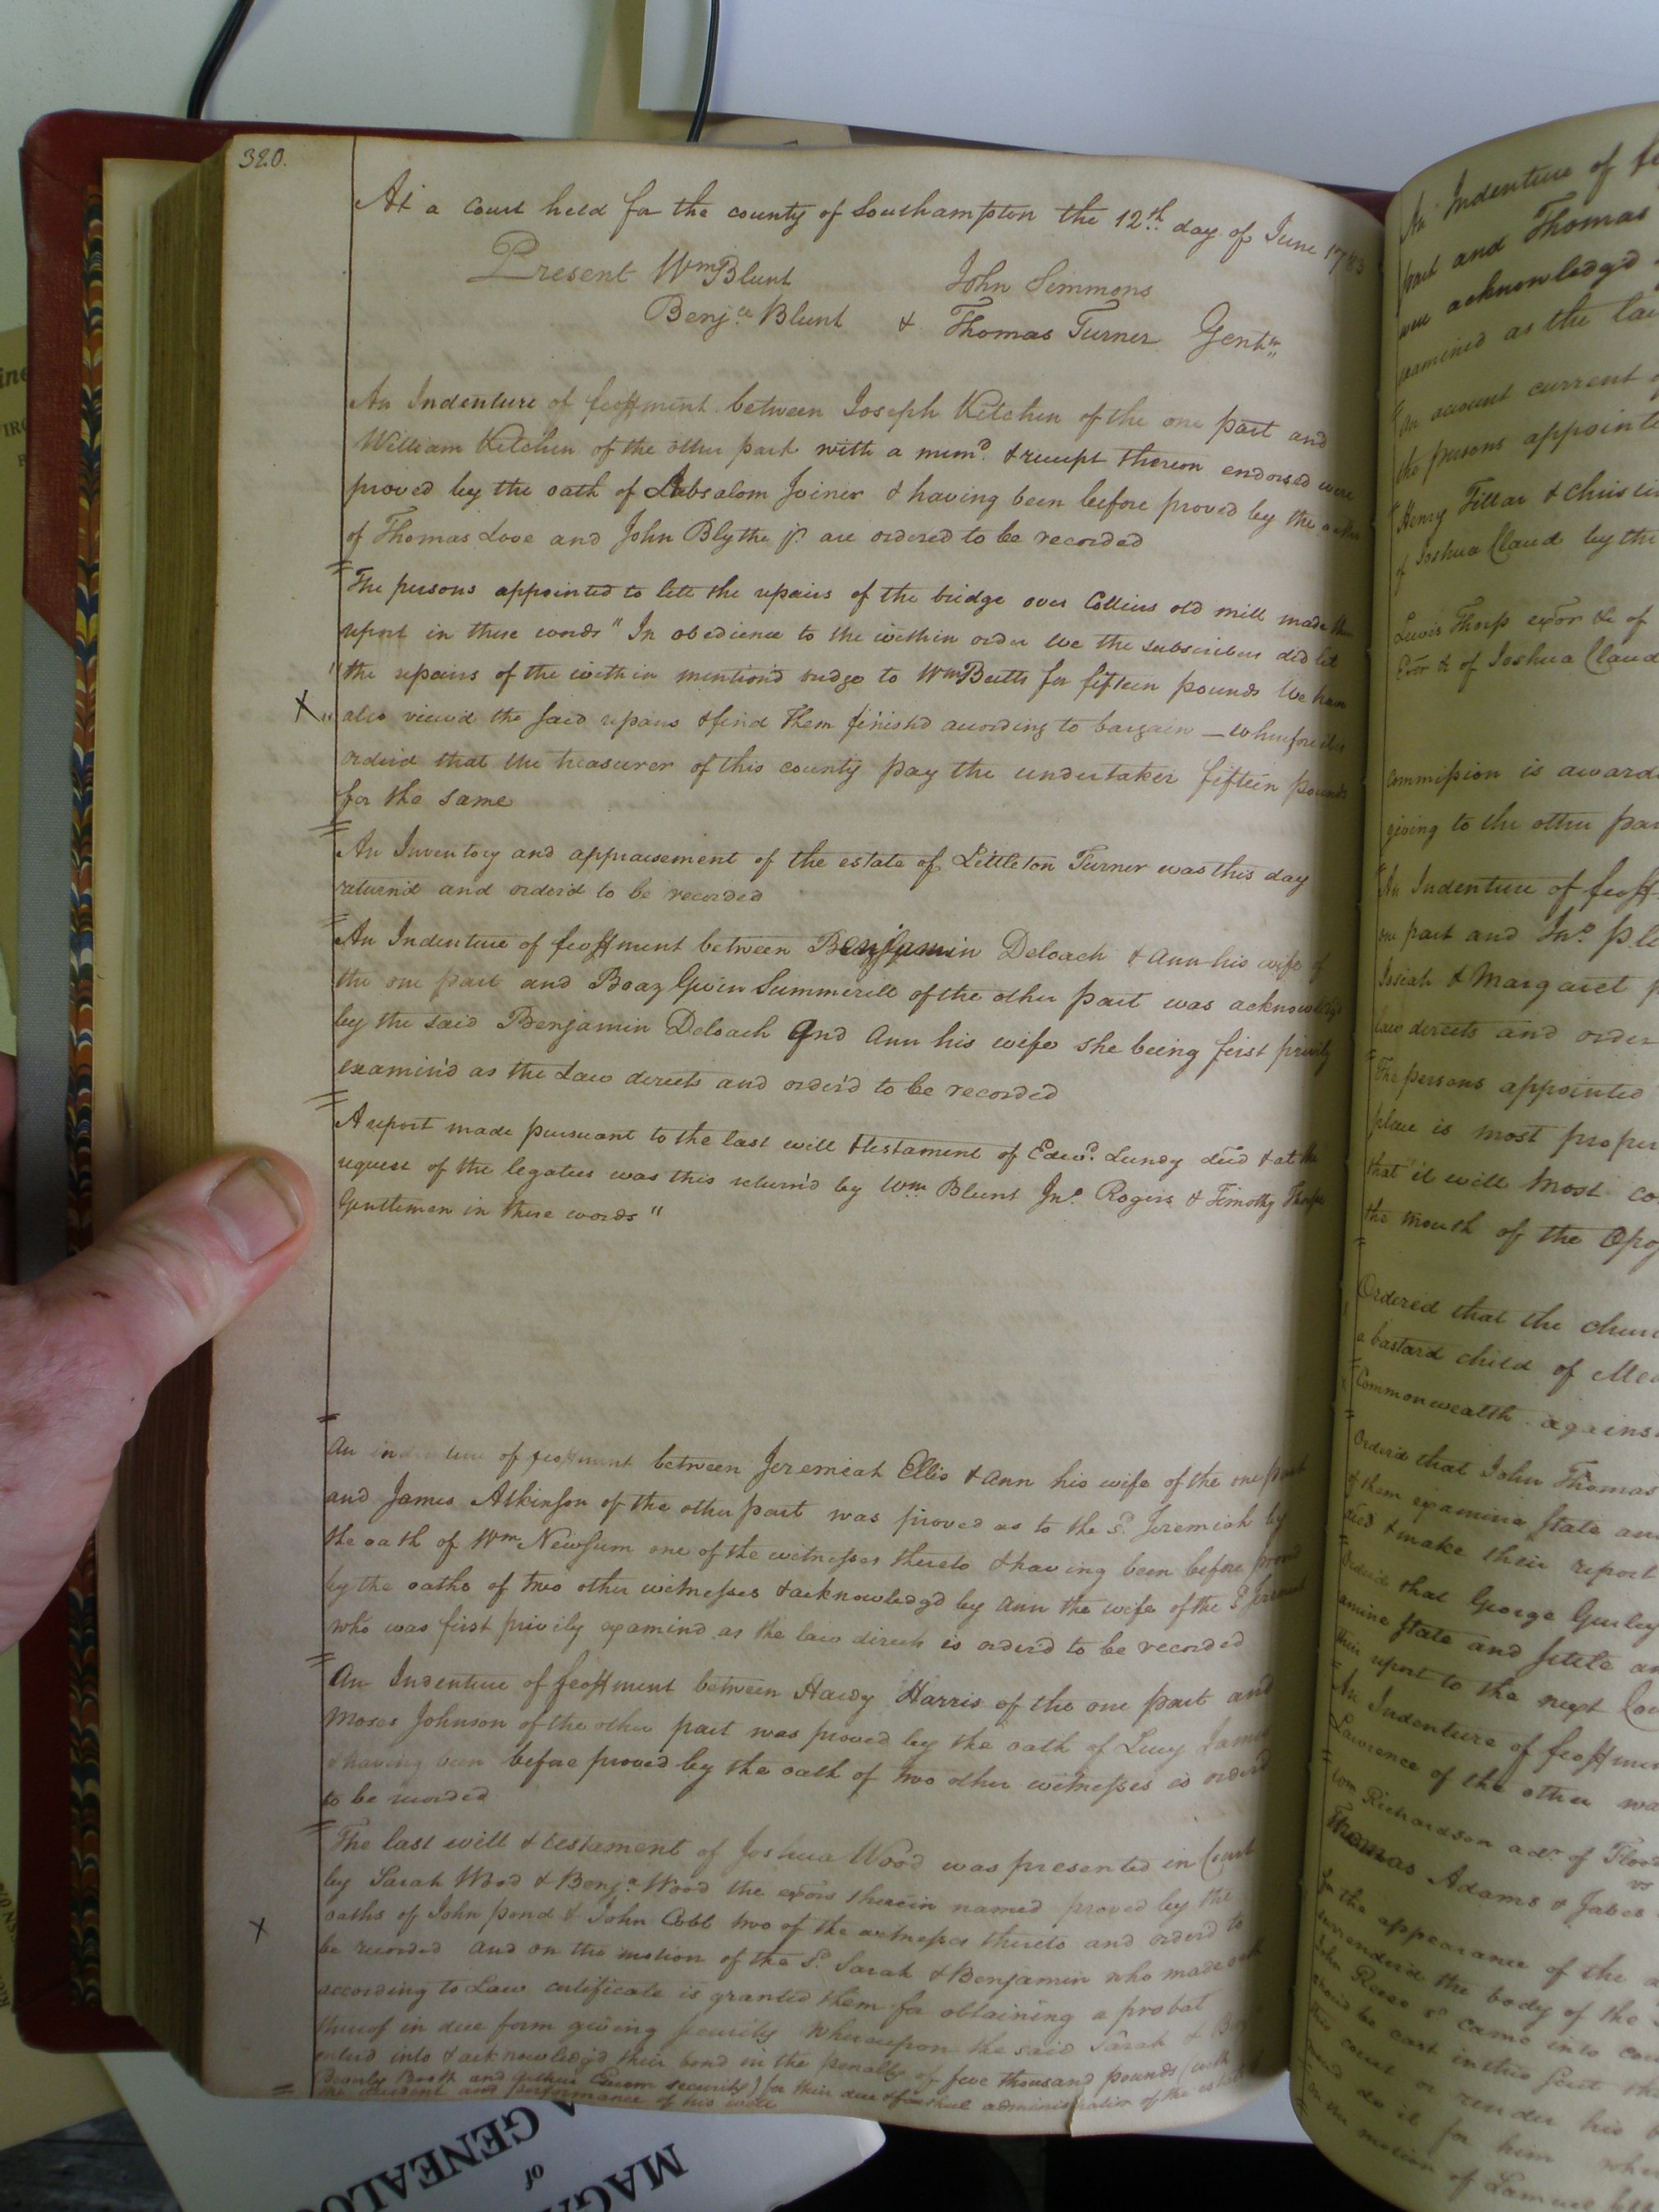 320.
At a Court held for the county of Southampton the 12th day of June 1783
Present Wm Blunt John Simmons
Benja Blunt & Thomas Turner Gentn
An Indenture of feoffment between Joseph Kitchen of the one part and
William Kitchen of the other part with a memd. & receipt thereon endorsed were
proved by the oath of Absalom Joiner & having been before proved by the oaths
of Thomas Love and John Blythe jr. are ordered to be recorded
The persons appointed to lett the repairs of the bridge over Collins old mill made their
report in these words "In obedience to the within order We the subscribers did let
"the repairs of the within mention'd bridge to Wm Butts for fifteen pounds We have
X "also view'd the said repairs & find them finish'd according to bargain — wherefore it is
order'd that the treasurer of this county pay the undertaker fifteen pounds
for the same
An Inventory and appraisement of the estate of Littleton Turner was this day
return'd and order'd to be recorded
An Indenture of feoffment between Benjamin Deloach & Ann his wife of
the one part and Boaz Gwin Summerell of the other part was acknowledg'd
by the said Benjamin Deloach and Ann his wife she being first privily
examin'd as the Law directs and order'd to be recorded
A report made pursuant to the last will & testament of Edwd. Lundy dec'd & at the
request of the legatees was this return'd by Wm Blunt Jno. Rogers & Timothy Thorpe
Gentlemen in these words "
An indenture of feoffment between Jeremiah Ellis & Ann his wife of the one part
and James Atkinson of the other part was proved as to the sd. Jeremiah by
the oath of Wm Newsum one of the witnesses thereto & having been before proved
by the oaths of two other witnesses & acknowledg'd by Ann the wife of the sd Jeremiah
who was first privily examin'd as the law directs is order'd to be recorded
An Indenture of feoffment between Hardy Harris of the one part and
Moses Johnson of the other part was proved by the oath of Lucy James
& having been before proved by the oath of two other witnesses is order'd
to be recorded
The last will & testament of Joshua Wood was presented in Court
by Sarah Wood & Benja. Wood the exors therein named proved by the
X oaths of John Pond & John Cobb two of the witnesses thereto and order'd to
be recorded and on the motion of the sd. Sarah & Benjamin who made oath
according to Law certificate is granted them for obtaining a probat
thereof in due form giving security whereupon the said Sarah & Benja
enterd into & acknowledg'd their bond in the penalty of five thousand pounds (with
Beverly Booth and security) for their due & faithful administration of the estate
and performance of his will
An Indenture of
part and Thomas
were acknowledg'd
examined as the law
An account current
the persons appointed
Henry Fillar &
of Joshua Claud by the
Lewis Thorp exor &c of
Exor &c of Joshua Claud
commission is award
giving to the other
An Indenture of feoff
one part and Jno.
Josiah & Margaret
law directs and order
The persons appointed
place is most proper
that it will most
the mouth of the
Ordered that the
a bastard child of
Commonwealth against
Order'd that John Thomas
of them examine state and
dec'd & make their report
Order'd that George Gurley
amine state and settle
their report to the next
An Indenture of feoffment
Lawrence of the other was
Wm Richardson adr. of
vs
Thomas Adams & Jabes
for the appearance of the
surrender'd the body of the
John came into
should be cast in this suit
this court or render his
do it for him
On the motion of
MAG
of
A GENEALO